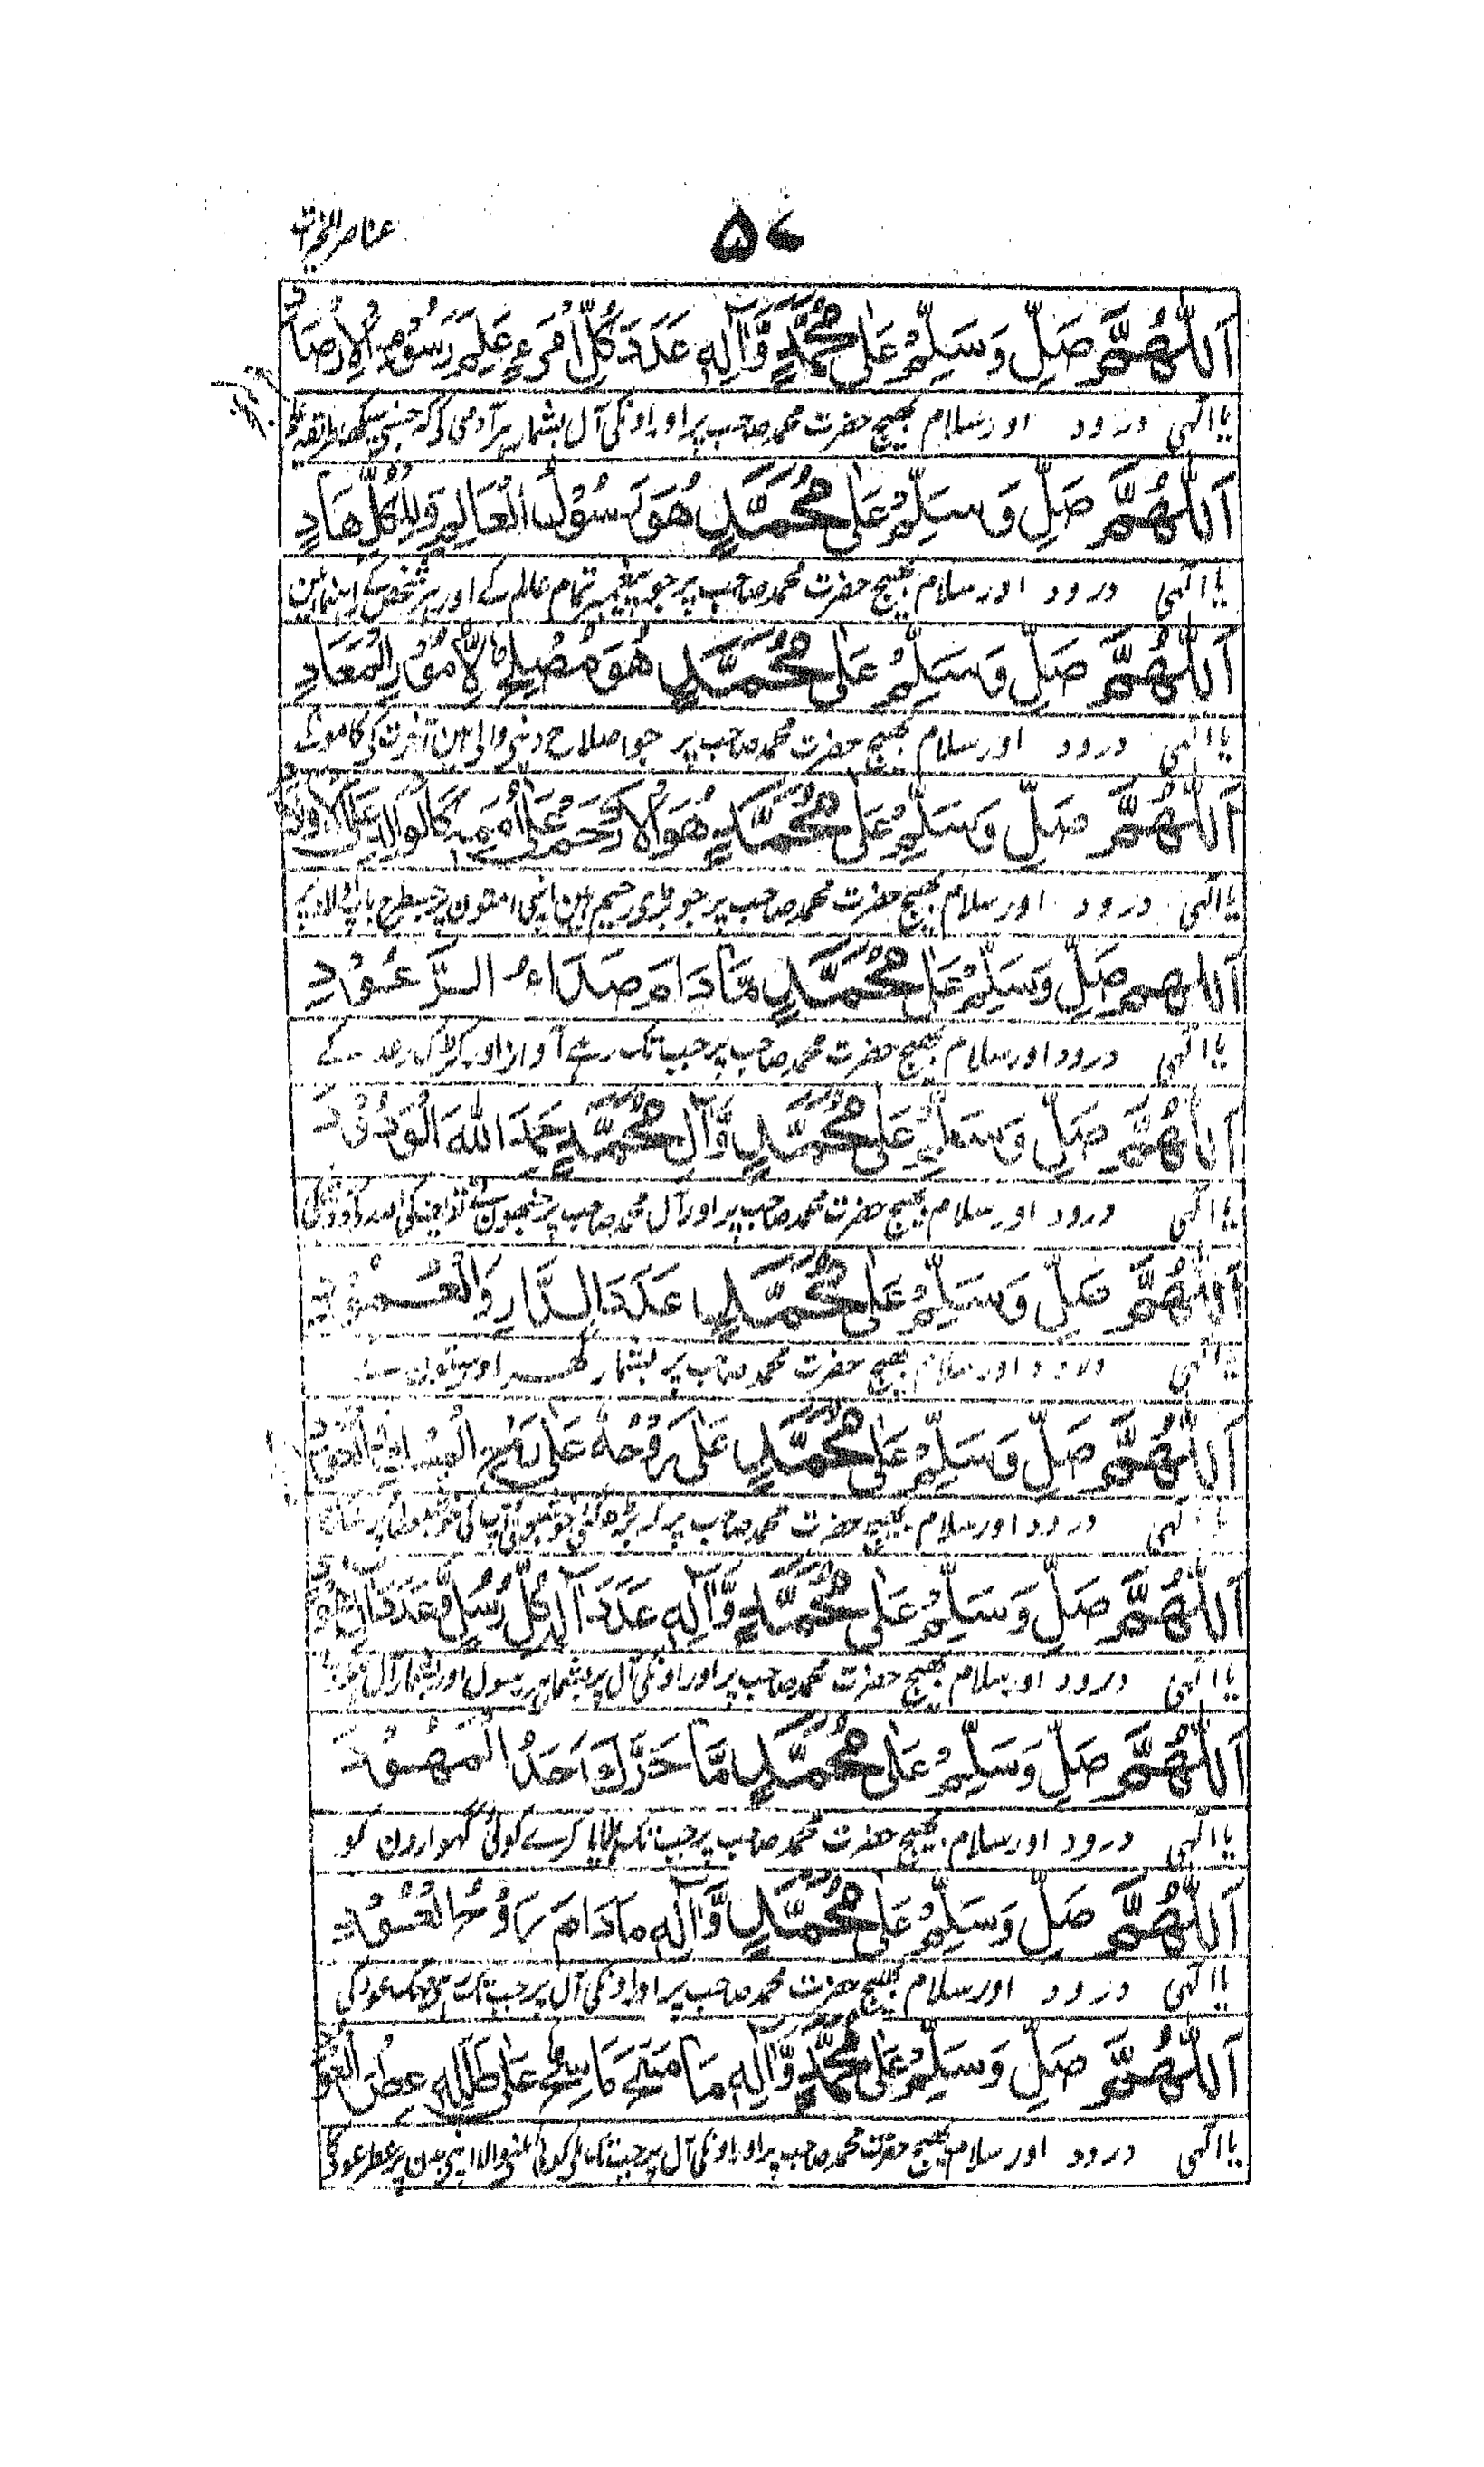 ۵۷
عناصر الخیرات
اَللّٰهُمَّ صَلِّ وَسَلِّمْ عَلٰى مُحَمَّدٍ وَّاٰلِهٖ عَدَدَ كُلِّ امْرَءٍ عَلِمَ رَسُوْمَ الْاِرْصَادِ
یا الٰہی درود اور سلام بھیج حضرت محمد صاحب پر اور اونکی آل بشمار ہر آدمی کی کہ جسنے سیکھے
اَللّٰهُمَّ صَلِّ وَسَلِّمْ عَلٰى مُحَمَّدٍ هُوَ رَسُوْلُ الْعَالَمِ وَلِكُلِّ هَادٍ
یا الٰہی درود اور سلام بھیج حضرت محمد صاحب پر جو پیغمبر تمام عالم کے اور ہر شخص کے رہنما ہین
اَللّٰهُمَّ صَلِّ وَسَلِّمْ عَلٰى مُحَمَّدٍ هُوَ مُصْلِحٌ لِاُمُوْرِ الْمَعَادِ
یا الٰہی درود اور سلام بھیج حضرت محمد صاحب پر جو اصلاح دینی والی ہین آخرت کی کامونکے
اَللّٰهُمَّ صَلِّ وَسَلِّمْ عَلٰى مُحَمَّدٍ هُوَ الْاَرْحَمُ عَلٰى اُمَّتِهٖ كَالْوَالِدِ عَلَى الْاَوْلَادِ
یا الٰہی درود اور سلام بھیج حضرت محمد صاحب پر جو بڑی رحیم ہین اپنی امتون پر جسطرح باپ اولاد پر
اَللّٰهُمَّ صَلِّ وَسَلِّمْ عَلٰى مُحَمَّدٍ مَّا دَامَ صَدَاءُ الرَّعُوْدِ
یا الٰہی درود اور سلام بھیج حضرت محمد صاحب پر جب تک رہے آواز اور کڑک رعد کے
اَللّٰهُمَّ صَلِّ وَسَلِّمْ عَلٰى مُحَمَّدٍ وَّاٰلِ مُحَمَّدٍ حَمِدَ اللّٰهَ الْوَدُوْدَ
یا الٰہی درود اور سلام بھیج حضرت محمد صاحب پر اور آل محمد صاحب پر جنھون نے تعریف کی اللہ ودود کی
اَللّٰهُمَّ صَلِّ وَسَلِّمْ عَلٰى مُحَمَّدٍ عَدَدَ الدَّارِ وَالْعُمُوْدِ
یا الٰہی درود اور سلام بھیج حضرت محمد صاحب پر بشمار گھر اور ستون کے
اَللّٰهُمَّ صَلِّ وَسَلِّمْ عَلٰى مُحَمَّدٍ عَلٰى رَوْحُهٗ عَلٰى
یا الٰہی درود اور سلام بھیج حضرت محمد صاحب پر کہ بڑھ گئی خوشبو آپ کی
اَللّٰهُمَّ صَلِّ وَسَلِّمْ عَلٰى مُحَمَّدٍ وَّاٰلِهٖ عَدَدَ اٰلِ كُلِّ رُسُلٍ
یا الٰہی درود اور سلام بھیج حضرت محمد صاحب پر اور اونکی آل پر بشمار ہر رسول اور بشمار آل
اَللّٰهُمَّ صَلِّ وَسَلِّمْ عَلٰى مُحَمَّدٍ مَّا حَرَّكَ اَحَدُ الْمُهُوْدَ
یا الٰہی درود اور سلام بھیج حضرت محمد صاحب پر جب تک ہلایا کرے کوئی گہوارون کو
اَللّٰهُمَّ صَلِّ وَسَلِّمْ عَلٰى مُحَمَّدٍ وَّاٰلِهٖ مَا دَامَ رَوْحُ الْعُوْدِ
یا الٰہی درود اور سلام بھیج حضرت محمد صاحب پر اور اونکی آل پر جب تک رہے مہک عود کی
اَللّٰهُمَّ صَلِّ وَسَلِّمْ عَلٰى مُحَمَّدٍ وَّاٰلِهٖ مَا مَسَحَ مَاسِحٌ عَلٰى طَلَلِهٖ عِطْرَ الْعُوْدِ
یا الٰہی درود اور سلام بھیج حضرت محمد صاحب پر اور اونکی آل پر جب تک ملی کوئی ملنے والا اپنی بدن پر عطر عود کا